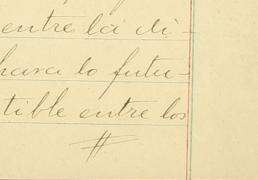 entre la di-
hara lo futu-
tible entre los
#